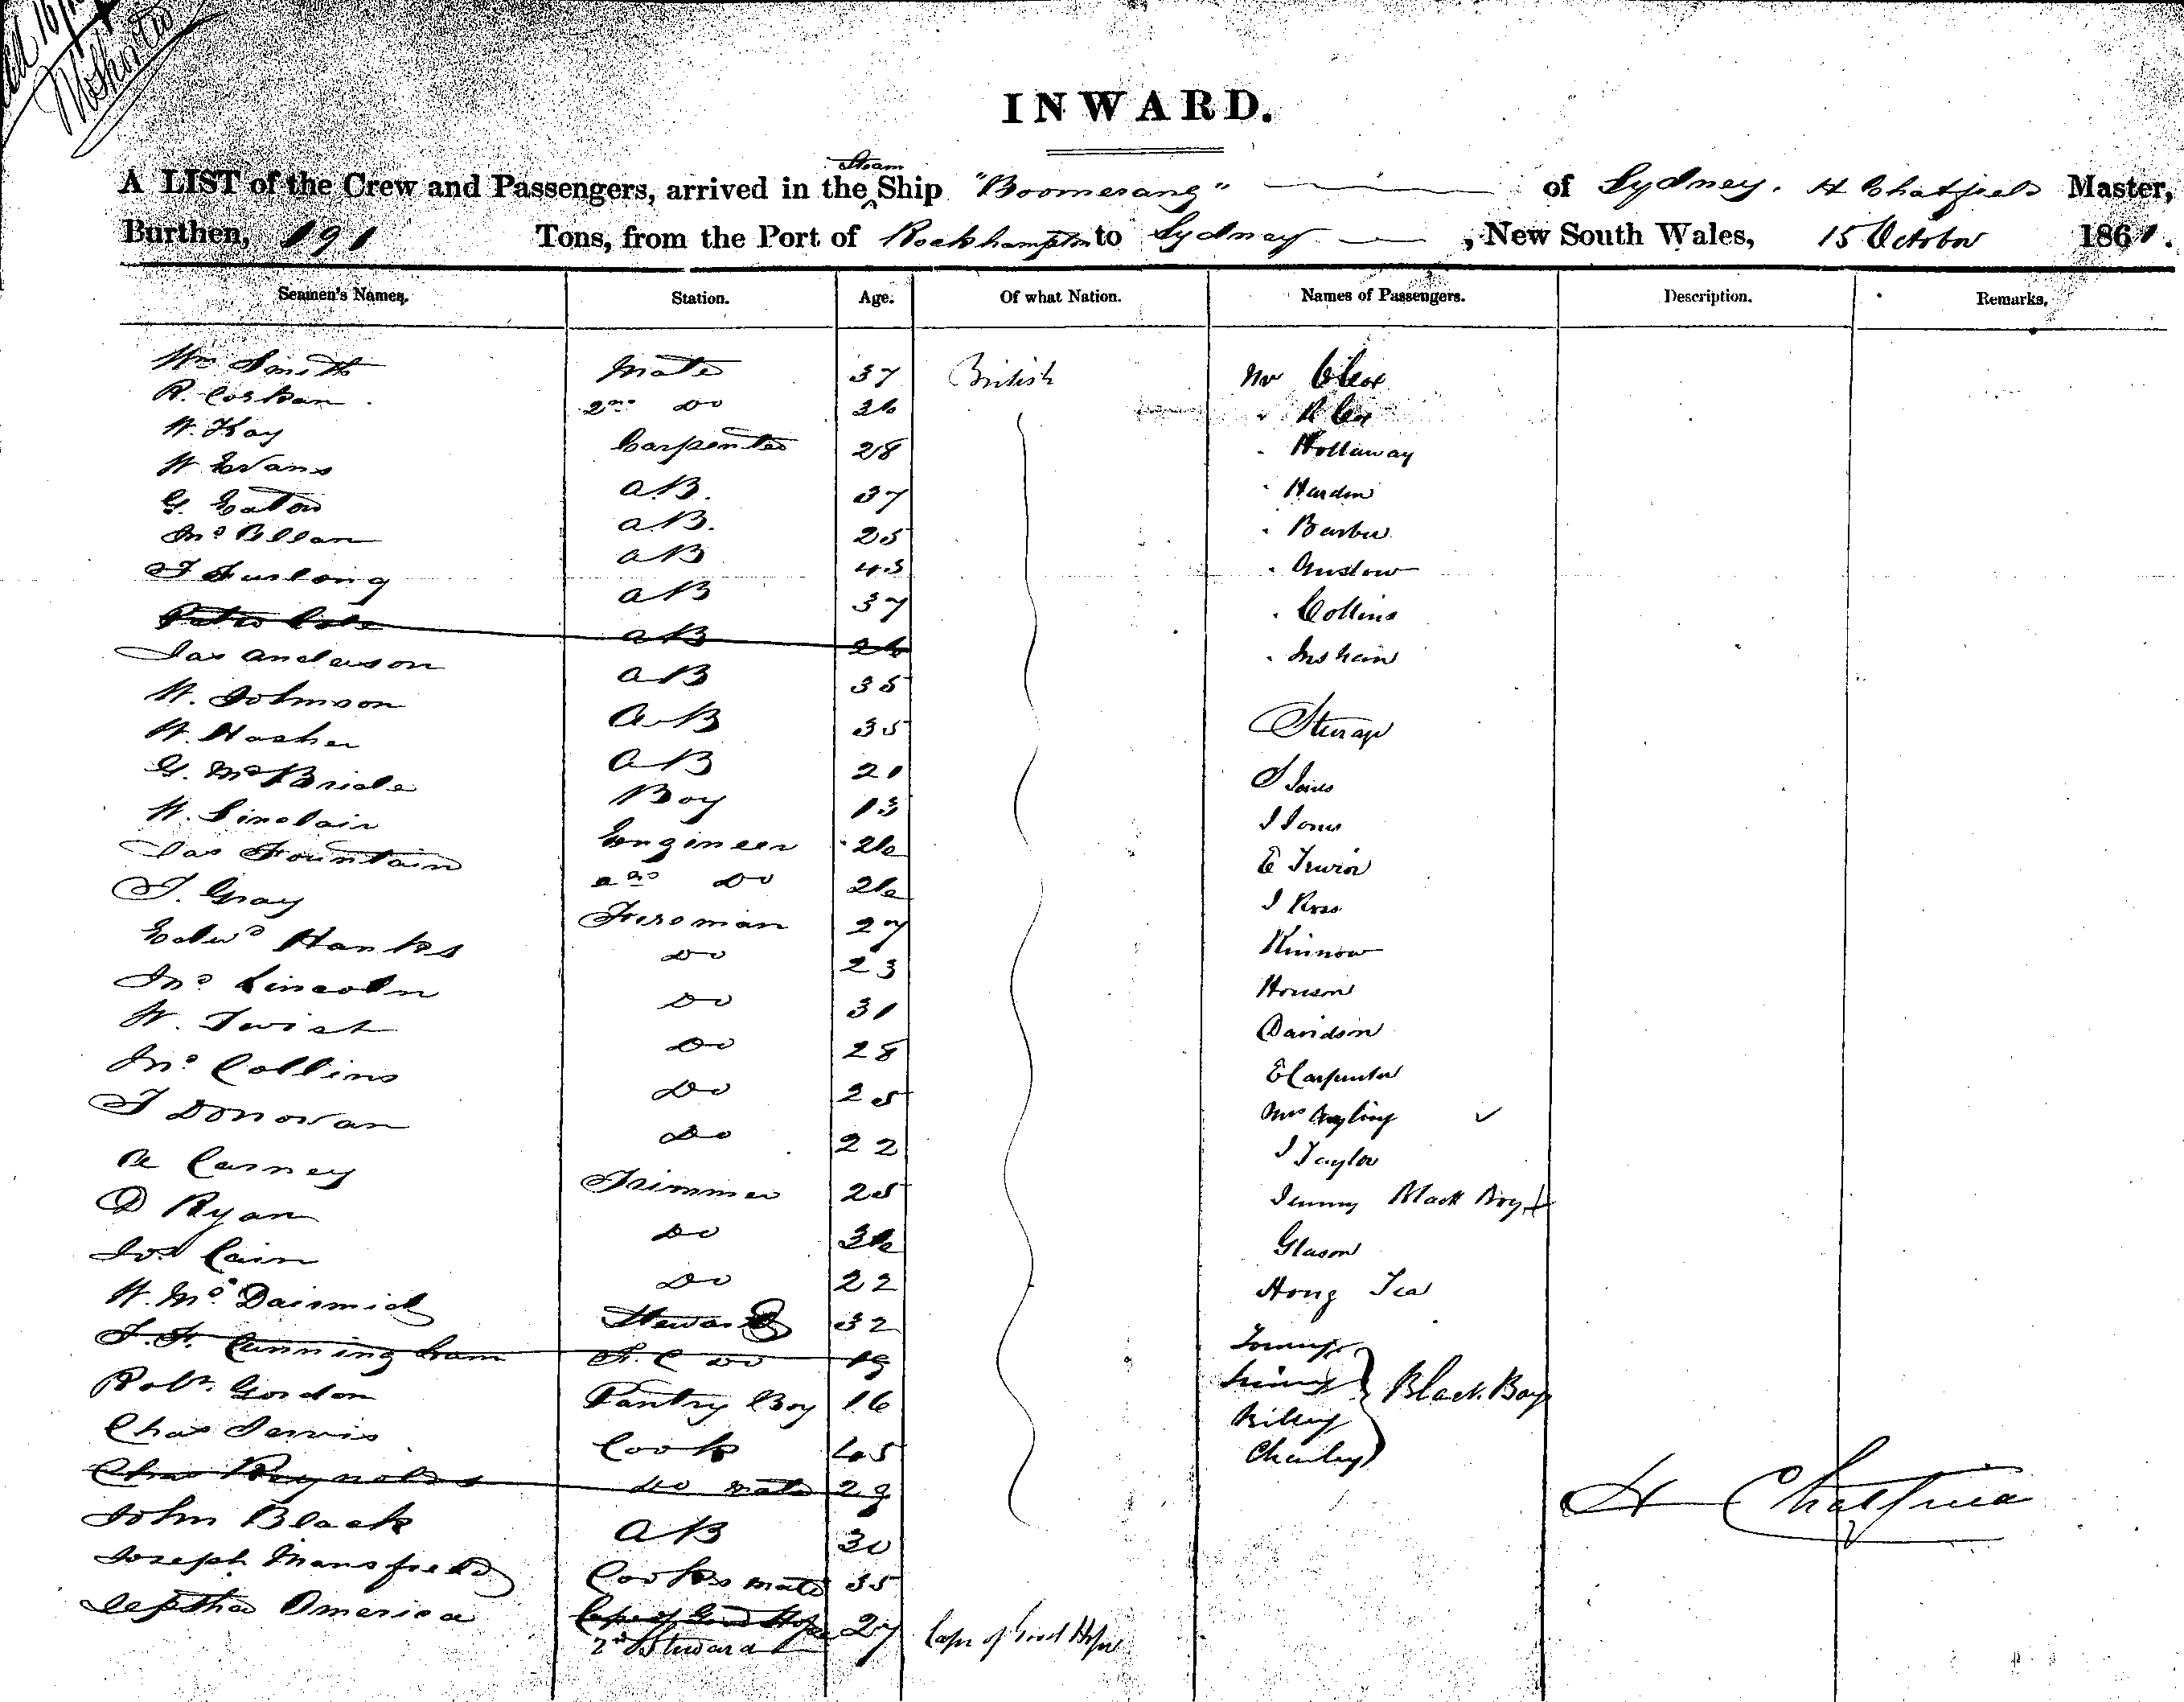 INWARD.
Steam
A LIST of the Crew and Passengers, arrived in the Ship "Boomerang" of Sydney. H Chatfield Master,
Burthen, 191 Tons, from the Port of Rockhampton to Sydney, New South Wales, 15 October 1861.
Seamen's Names. Station. Age. Of what Nation. Names of Passengers. Description. Remarks.
Wm Smith Mate 37 British Mr
R. Corkan 2nd Do 26 " R Cox
W. Kay Carpenter 28 " Hollaway
W. Evans AB. 37 " Harden
G. Eaton AB. 25 " Barber
Jno Bellan AB 43 " Onslow
T Furlong AB 37 " Collins
Peter Cole AB 26 "
Jas Anderson AB 35
W. Johnson AB 35 Steerage
W. Hasher AB 21 S Jones
G. McBride Boy 13 J Jones
W. Sinclair Engineer 26 E Irwin
Jas Fountain 2nd Do 26 J Ross
T. Gray Fireman 27 Kinnow
Edwd Hanks Do 23 Houson
Jno Lincoln Do 31 Davidson
W. Twist Do 28 E Carpenter
Jno Collins Do 25 Mrs Ayling
T Donovan Do 22 J Taylor
R Carney Trimmer 25 Jemmy Black Boy
D Ryan Do 36 Glason
Jos Cain Do 22 Hong Tea
W. McDairmid Steward 32
T. F. Cunningham F. C Do 19 Tommy
Robt. Gordon Pantry Boy 16 Jimmy Black Boys
Chas Jervis Cook 45 Billy
Chas Reynolds Do Mate 29 Charley
John Black AB 30 H Chatfield
Joseph Mansfield Cooks Mate 35
Jeptha America Cape of Good Hope 27 Cape of Good Hope
2nd Steward